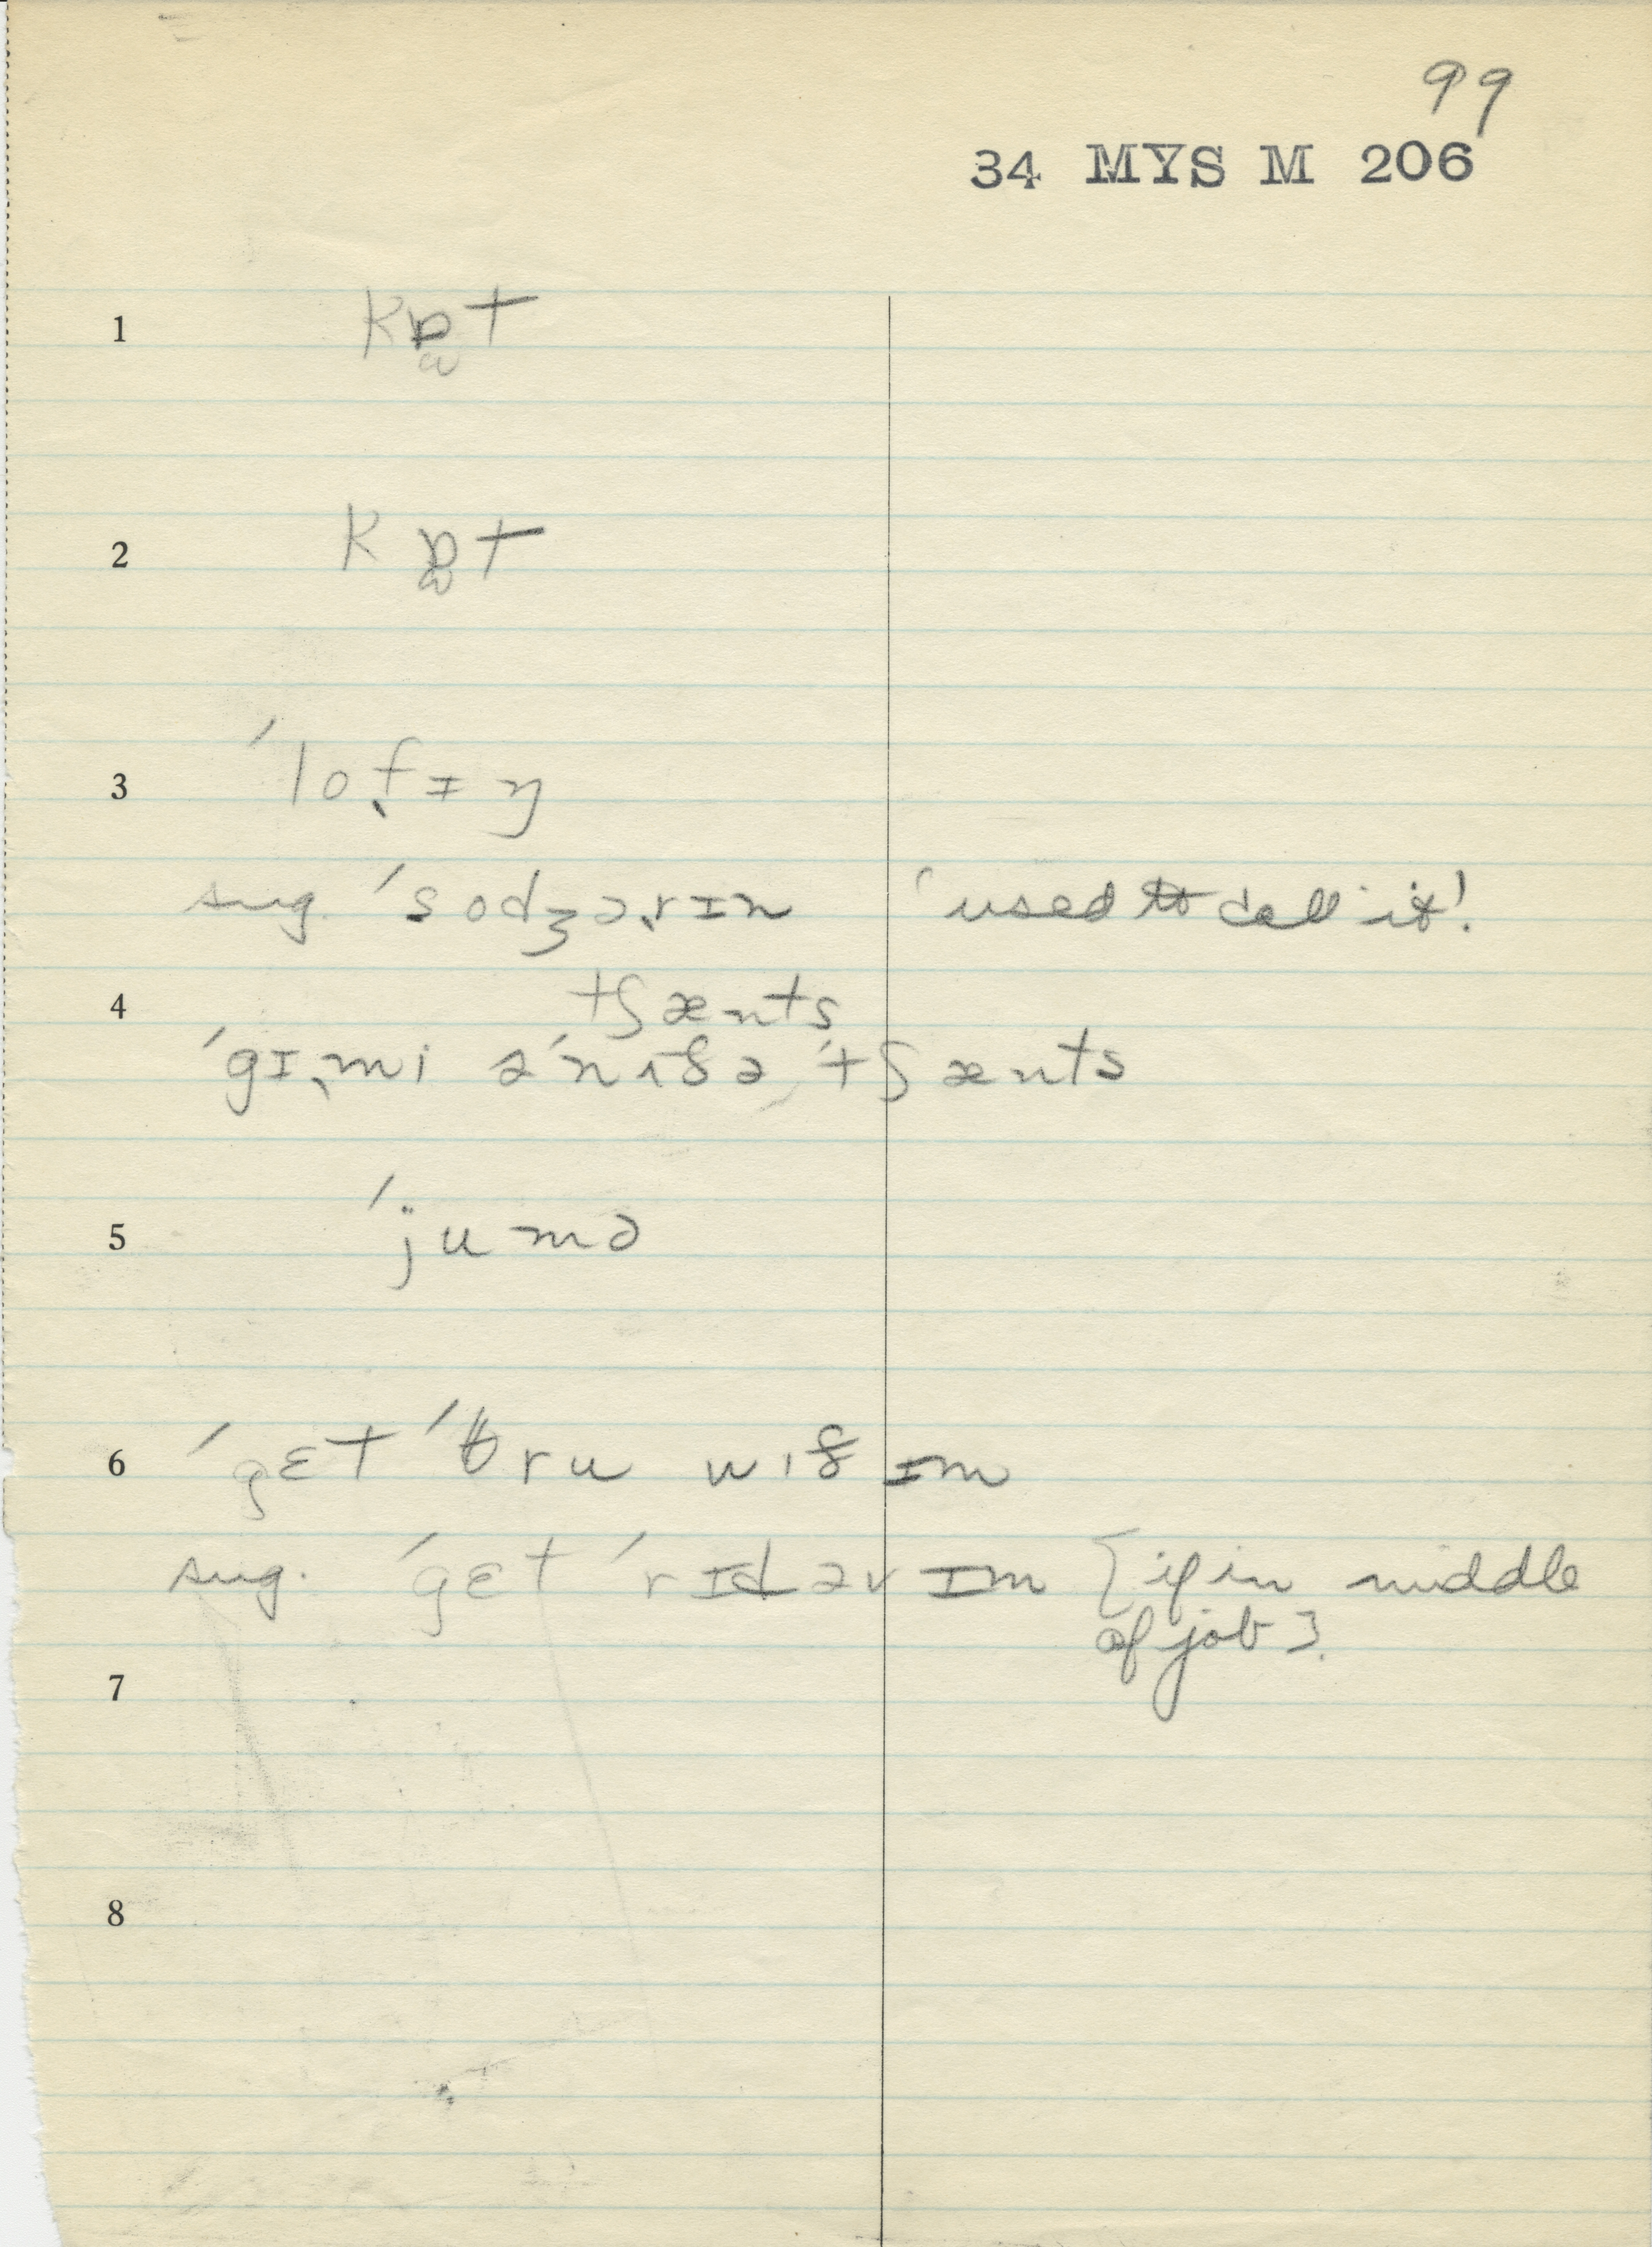 99
34 MYS M 206
1 kɒ̫t
2 kɒ̫t
3 ˈlof̜ɪŋ
sug. ˈsodʒərɪn 'used to call it!
4 tʃænts
ˈgɪˌmi əˈnʌðə ˈtʃænts
5 ˈjumə
6 ˈgɛt ˈθru wɪð ɪm
sug. ˈgɛt ˈrɪd əv ɪm [if in middle
of job].
7
8